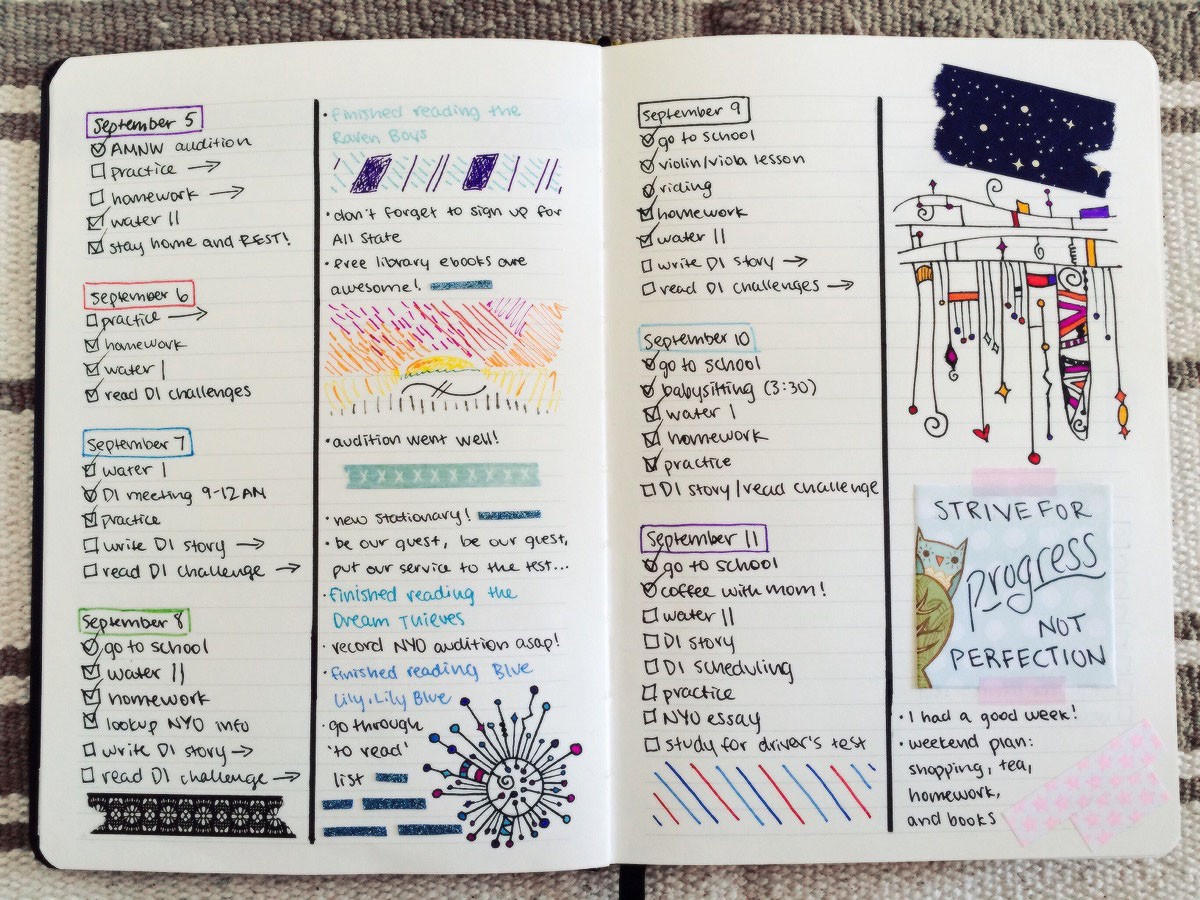 September 5
AMNW audition
practice →
homework →
water ||
stay home and REST!
September 6
practice →
homework
water |
read DI challenges
September 7
water |
DI meeting 9-12 AM
practice
write DI story →
read DI challenge →
September 8
go to school
water ||
homework
lookup NYO info
write DI story →
read DI challenge →
· finished reading the
Raven Boys
· don't forget to sign up for
All State
· free library ebooks are
awesome!
· audition went well!
· new stationary!
· be our guest, be our guest,
put our service to the test...
· finished reading the
Dream Thieves
· record NYO audition asap!
· finished reading Blue
Lily, Lily Blue
· go through
'to read'
list
September 9
go to school
violin/viola lesson
riding
homework
water ||
write DI story →
read DI challenges →
September 10
go to school
babysitting (3:30)
water |
homework
practice
DI story/read challenge
September 11
go to school
coffee with mom!
water ||
DI story
DI scheduling
practice
NYO essay
study for driver's test
STRIVE FOR
progress
NOT
PERFECTION
· I had a good week!
· weekend plan:
shopping, tea,
homework,
and books